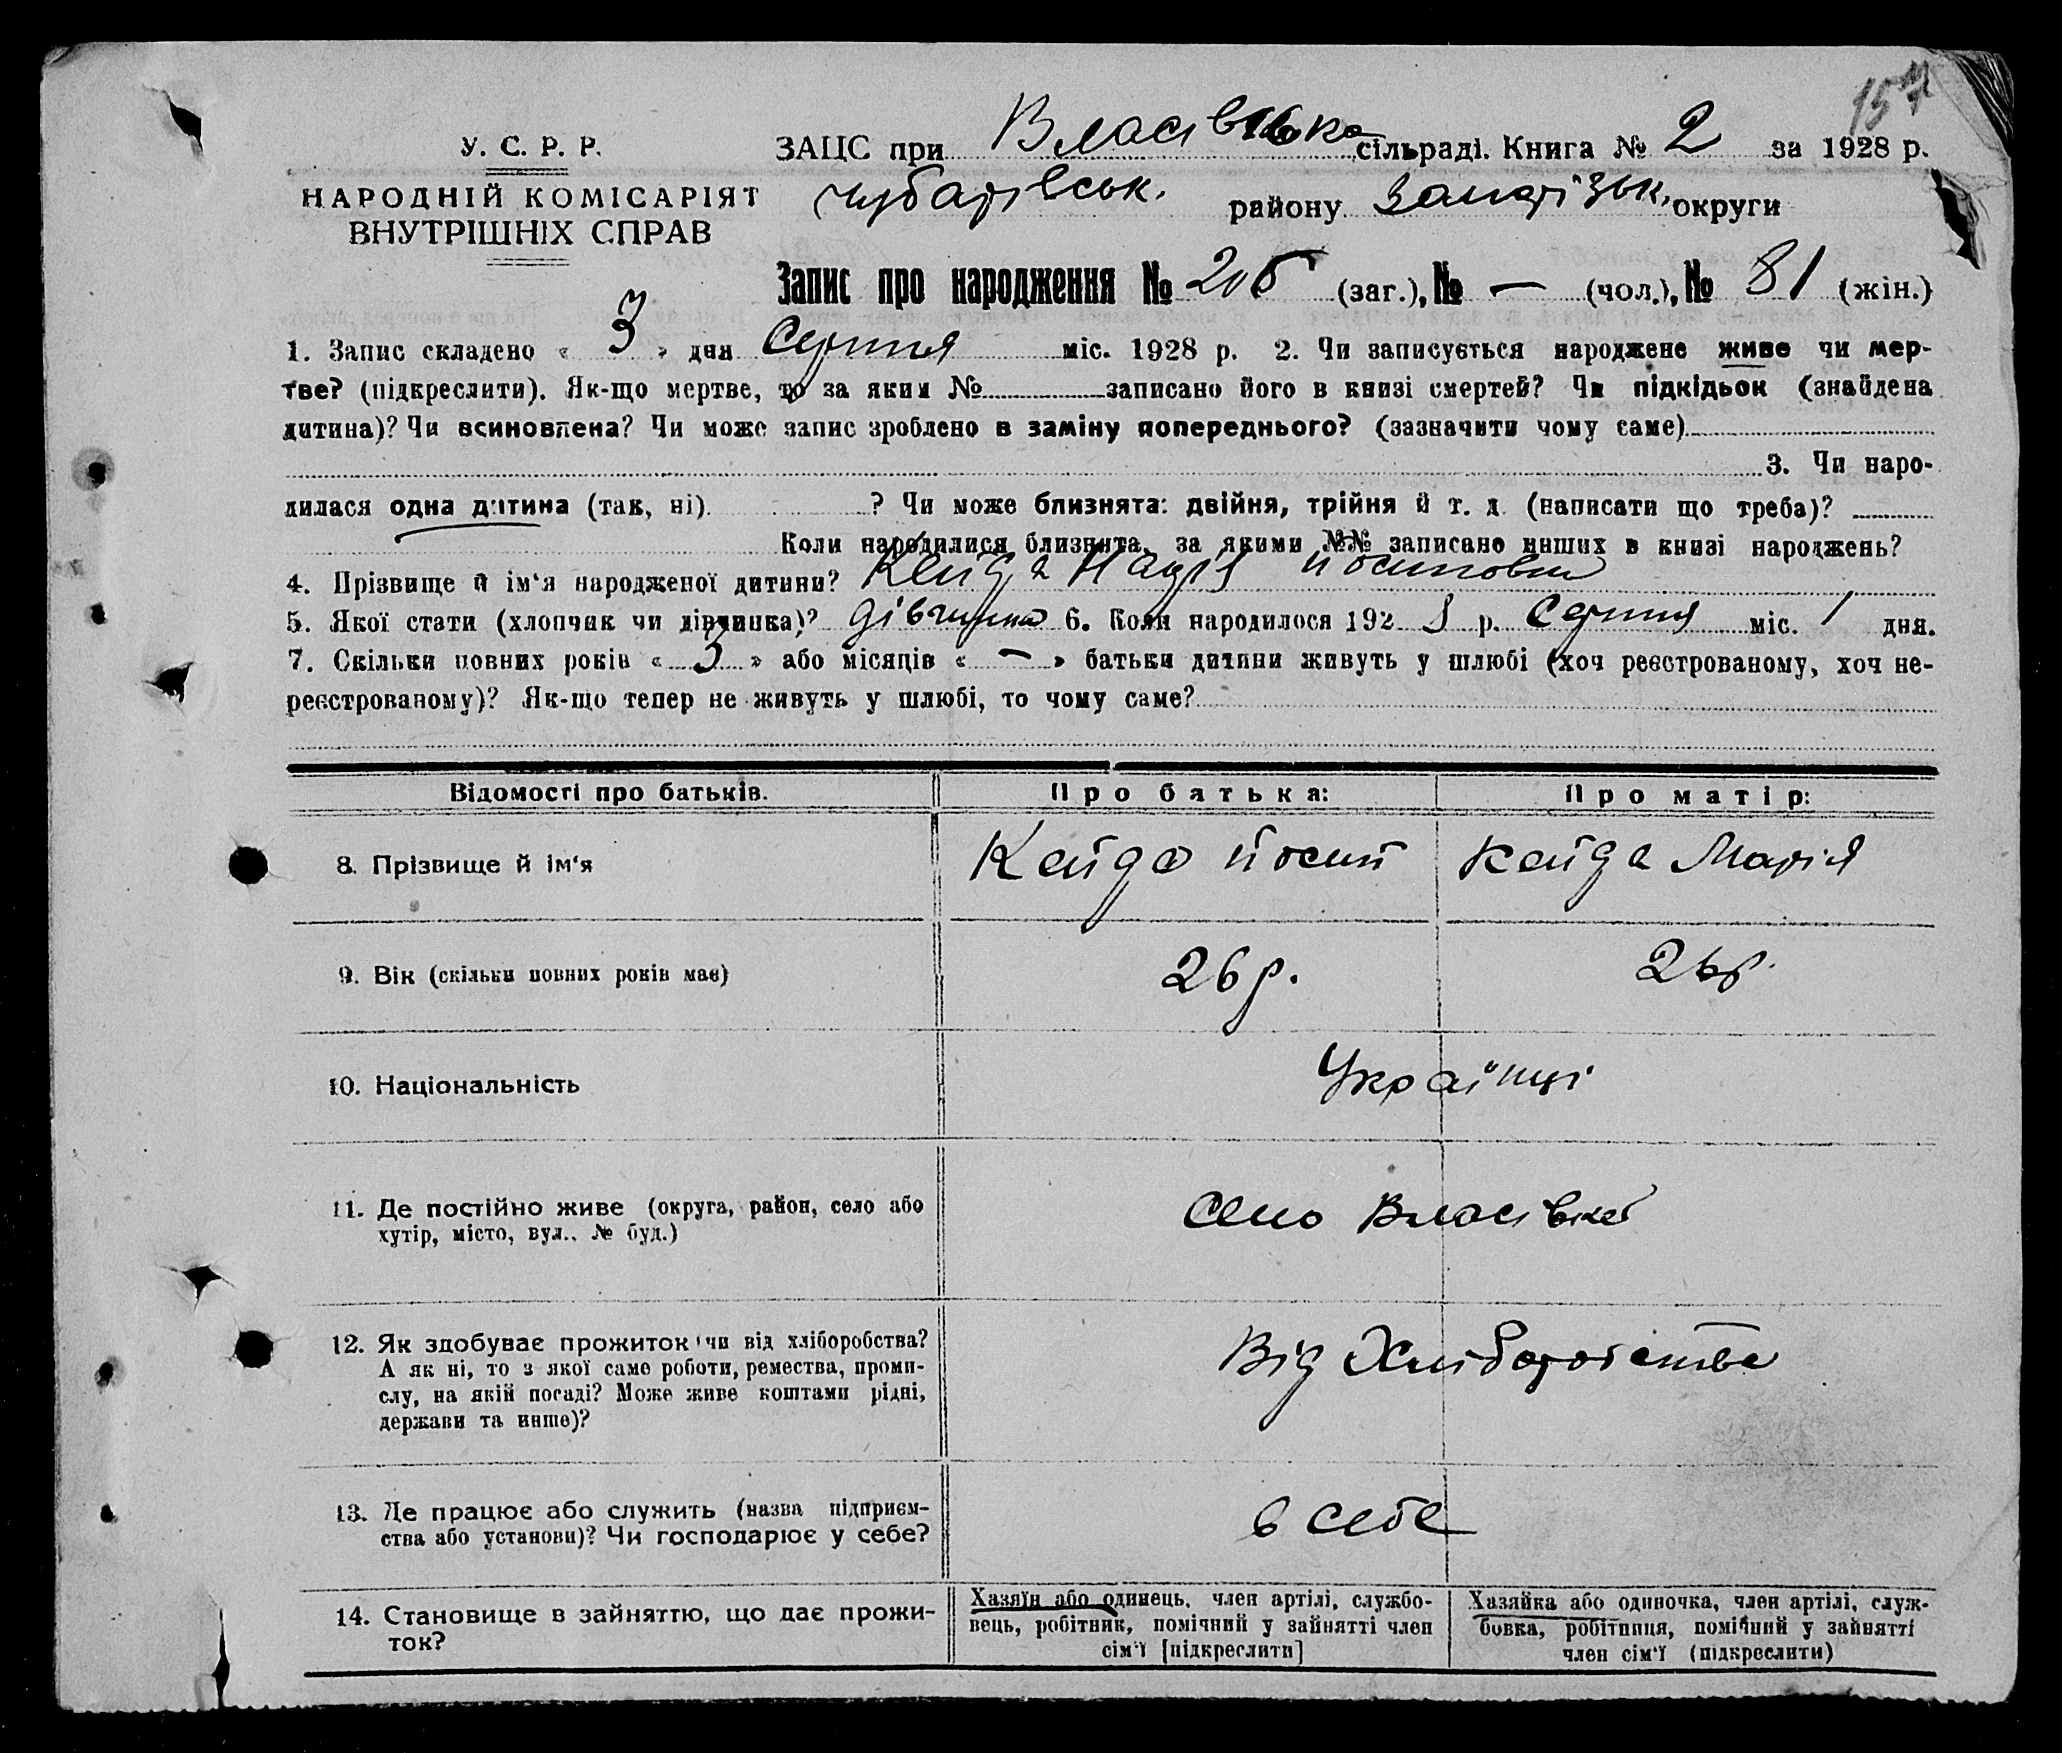 157
У. С. Р. Р.
НАРОДНІЙ КОМІСАРІЯТ
ВНУТРІШНІХ СПРАВ
ЗАЦС при Власівська сільраді. Книга № 2 за 1928 р.
Чубарівськ. району Запорізьк. округи
Запис про народження № 205 (заг.), № — (чол.), № 81 (жін.)
1. Запис складено « 3 » дня Серпня міс. 1928 р. 2. Чи записується народжене живе чи мер-
тве? (підкреслити). Як-що мертве, то за яким № записано його в книзі смертей? Чи підкідьок (знайдена
дитина)? Чи всиновлена? Чи може запис зроблено в заміну попереднього? (зазначити чому саме)
3. Чи наро-
дилася одна дитина (так, ні). ? Чи може близнята: двійня, трійня й т. д. (написати що треба)?
Коли народилися близнята, за якими №№ записано инших в книзі народжень?
4. Прізвище й ім'я народженої дитини? Кайда Йосиповна
5. Якої стати (хлопчик чи дівчинка)? дівчина 6. Коли народилося 192 8 р. Серпня міс. 1 дня.
7. Скільки повних років « 3 » або місяців « — » батьки дитини живуть у шлюбі (хоч реєстрованому, хоч не-
реєстрованому)? Як-що тепер не живуть у шлюбі, то чому саме?
Відомості про батьків. Про батька: Про матір:
8. Прізвище й ім'я Кайда Йосип Кайда Марія
9. Вік (скільки повних років має) 26 р. 26 р.
10. Національність Українці
11. Де постійно живе (округа, район, село або
хутір, місто, вул., № буд.)
Село Власівка
12. Як здобуває прожиток чи від хліборобства?
А як ні, то з якої саме роботи, ремества, проми-
слу, на якій посаді? Може живе коштами рідні,
держави та инше)?
Від Хліборобства
13. Де працює або служить (назва підприєм-
ства або установи)? Чи господарює у себе?
в себе
14. Становище в зайняттю, що дає прожи-
ток?
Хазяїн або одинець, член артілі, службо-
вець, робітник, помічний у зайнятті член
сім'ї [підкреслити]
Хазяйка або одиночка, член артілі, служ-
бовка, робітниця, помічний у зайнятті
член сім'ї (підкреслити)